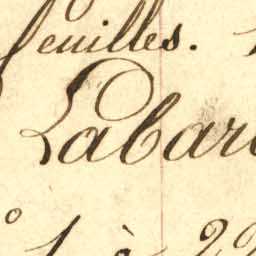 feuilles.
Labar
1 à 22